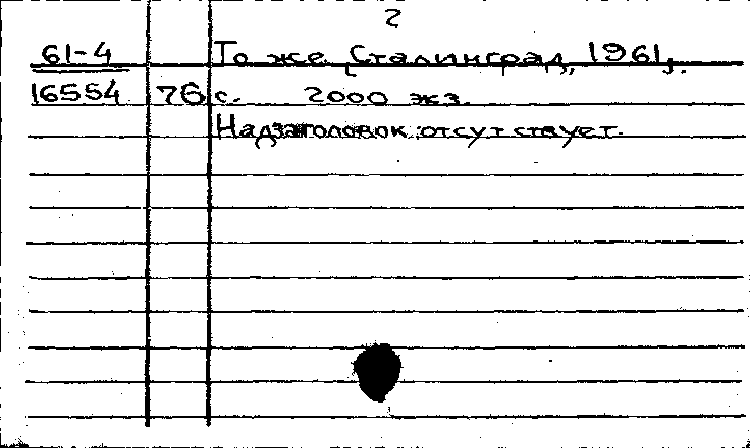 2
61-4 То же. [Сталинград, 1961].
16554 76 с. 2000 экз.
Надзаголовок отсутствует.